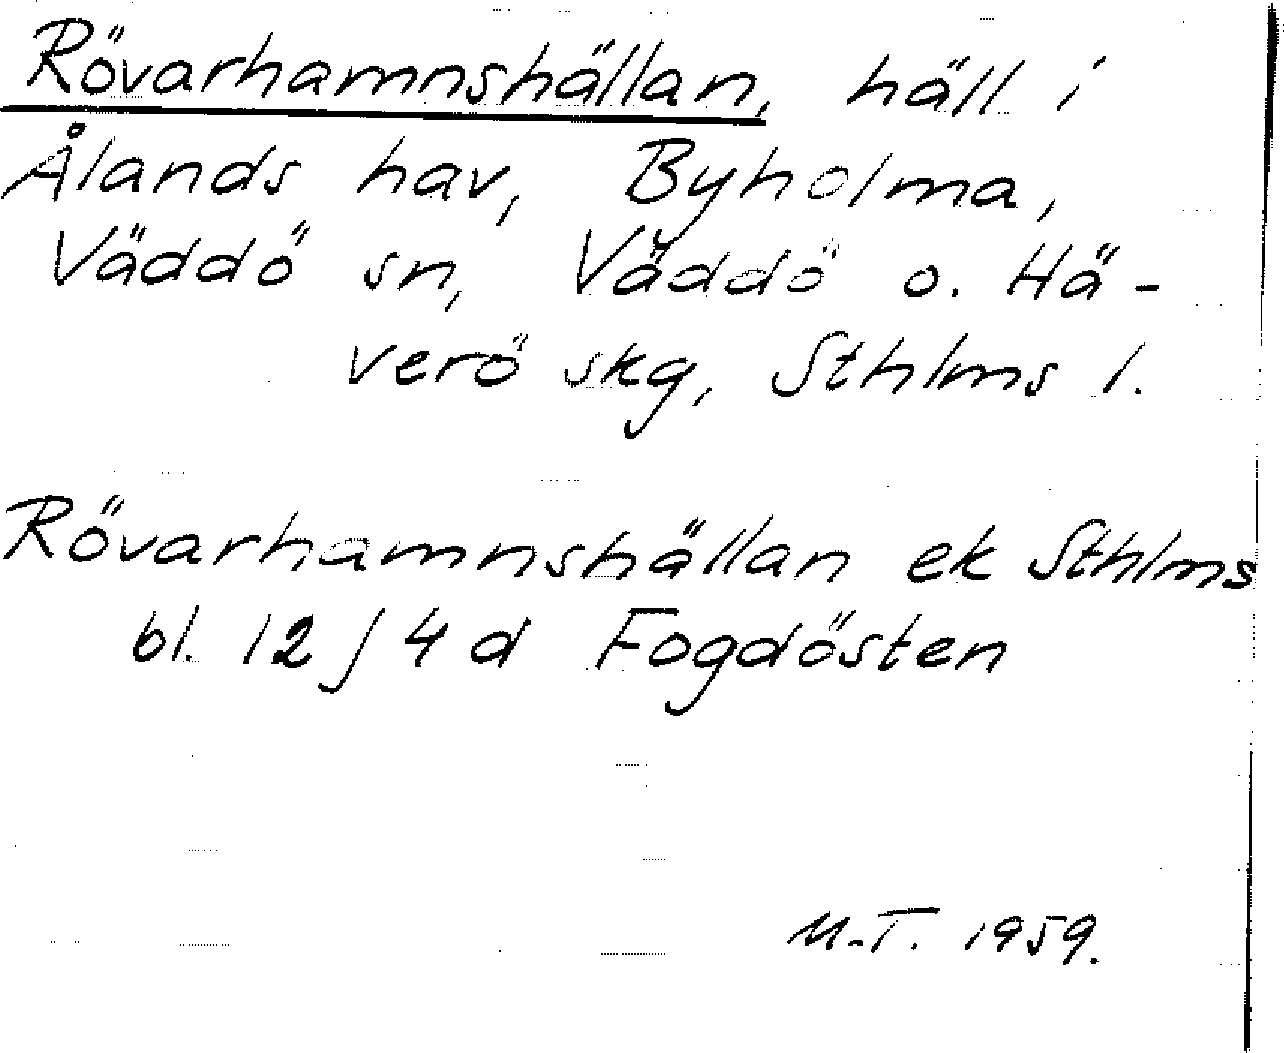 Rövarhamnshällan, häll i
Ålands hav, Byholma,
Väddö sn, Väddö o. Hä-
verö skg, Sthlms l.
Rövarhamnshällan ek Sthlms
bl. 12 J 4 d Fogdösten
M.T. 1959.